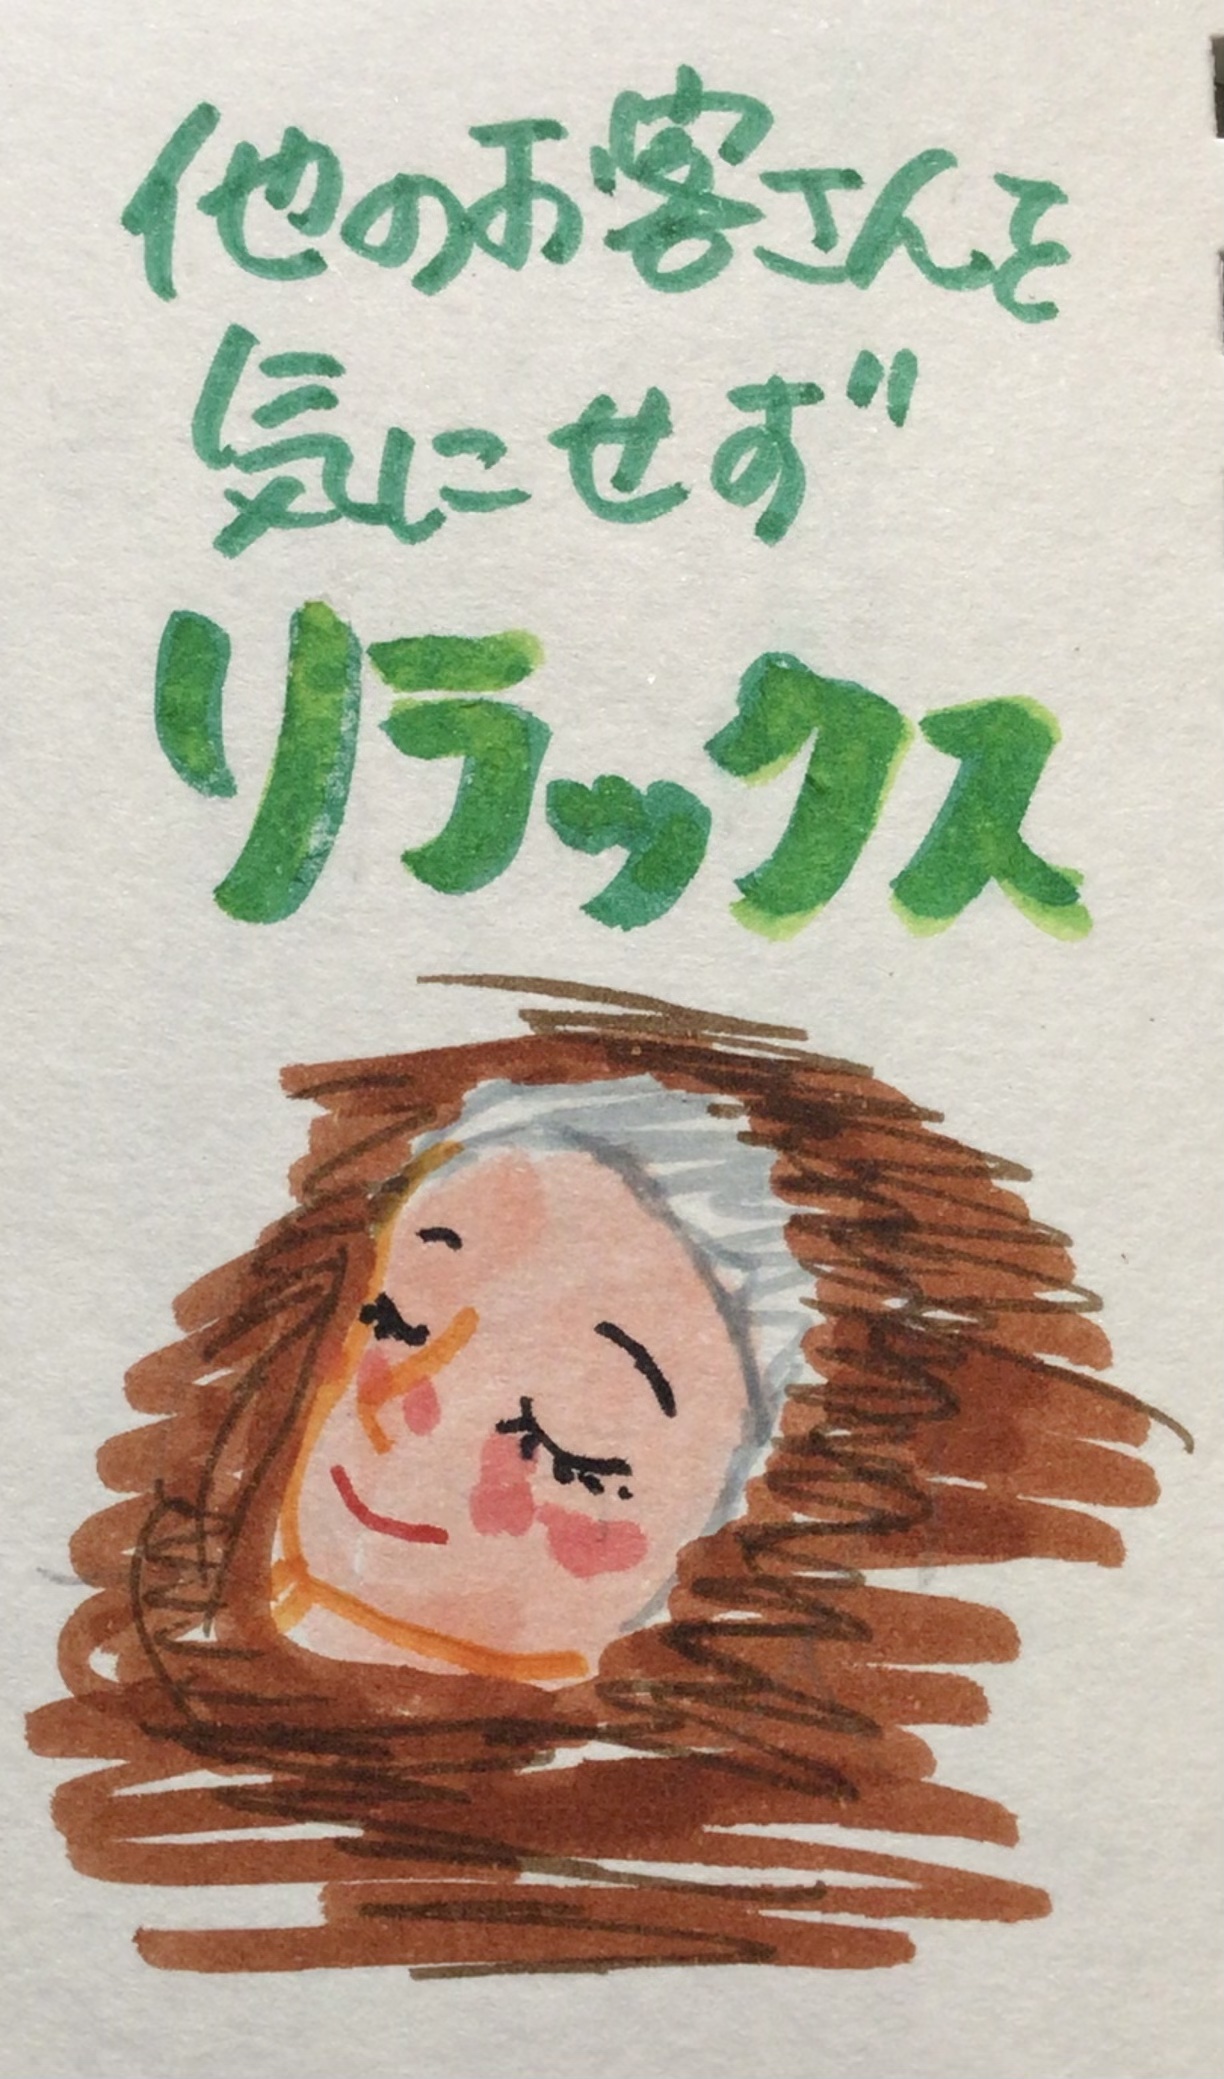 他のお客さんを
気にせず
リラックス